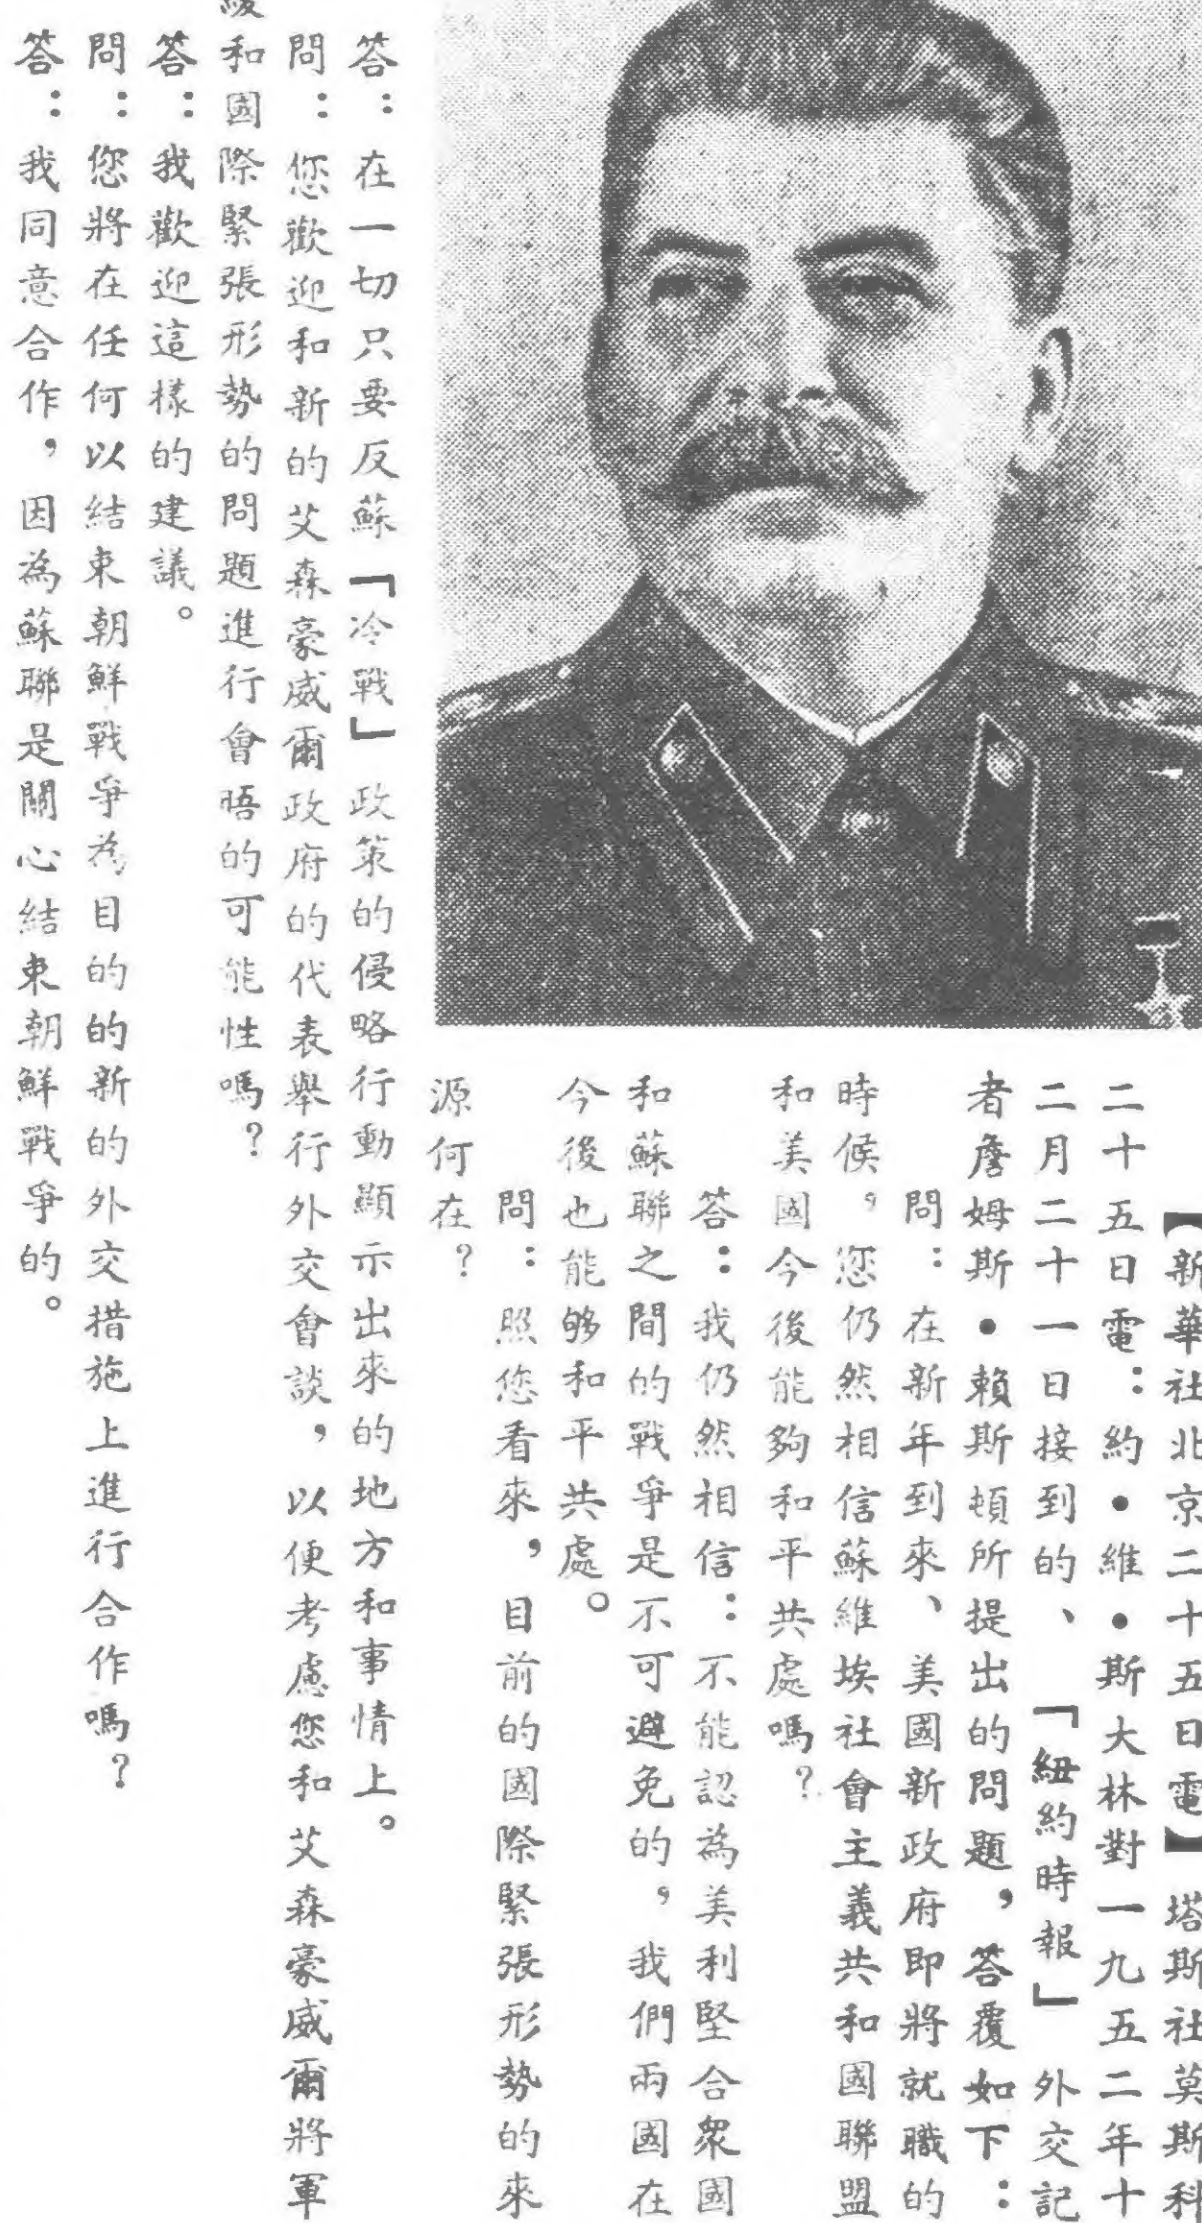 【新華社北京二十五日電】塔斯社莫斯科
二十五日電：約•維•斯大林對一九五二年十
二月二十一日接到的、「紐約時報」外交記
者詹姆斯•賴斯頓所提出的問題，答覆如下：
問：在新年到來、美國新政府即將就職的
時候，您仍然相信蘇維埃社會主義共和國聯盟
和美國今後能夠和平共處嗎？
答：我仍然相信：不能認為美利堅合衆國
和蘇聯之間的戰爭是不可避免的，我們兩國在
今後也能够和平共處。
問：照您看來，目前的國際緊張形勢的來
源何在？
答：在一切只要反蘇「冷戰」政策的侵略行動顯示出來的地方和事情上。
問：您歡迎和新的艾森豪威爾政府的代表舉行外交會談，以便考慮您和艾森豪威爾將軍
和國際緊張形勢的問題進行會晤的可能性嗎？
答：我歡迎這樣的建議。
問：您將在任何以結束朝鮮戰爭為目的的新的外交措施上進行合作嗎？
答：我同意合作，因為蘇聯是關心結束朝鮮戰爭的。